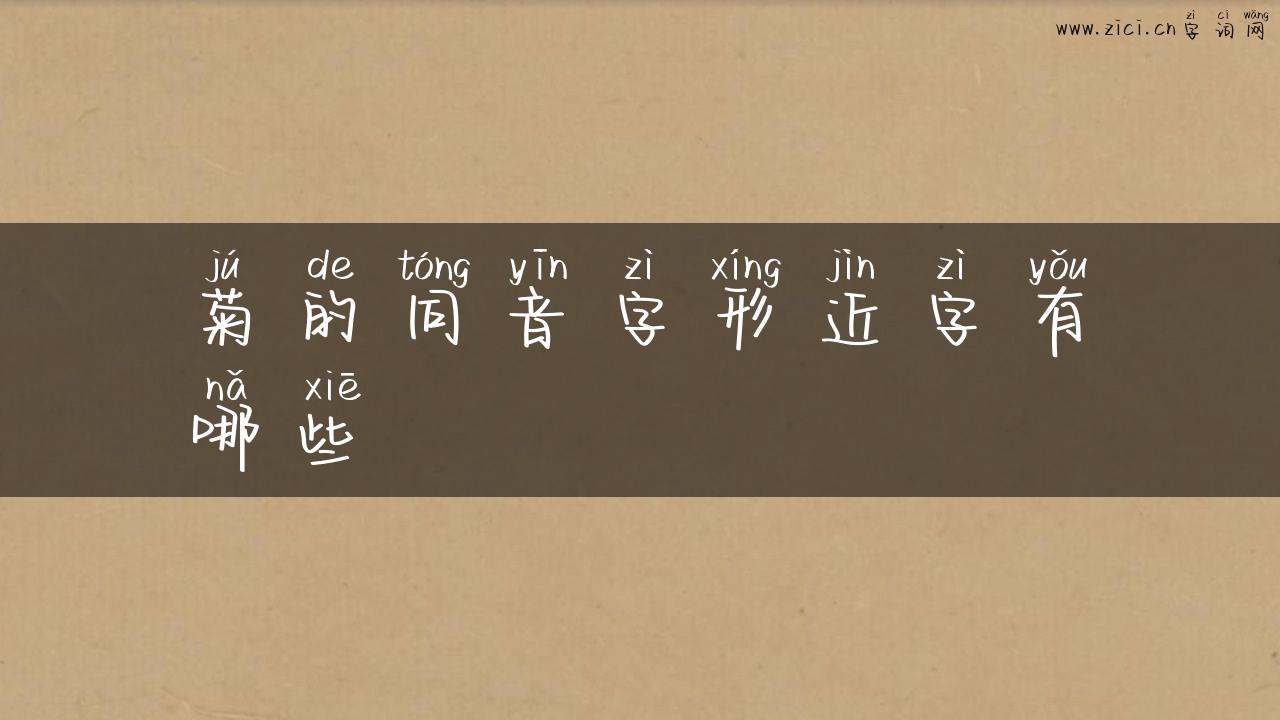 zì cí wǎng
www.zici.cn 字 词 网
jú de tóng yīn zì xíng jìn zì yǒu
菊 的 同 音 字 形 近 字 有
nǎ xiē
哪 些